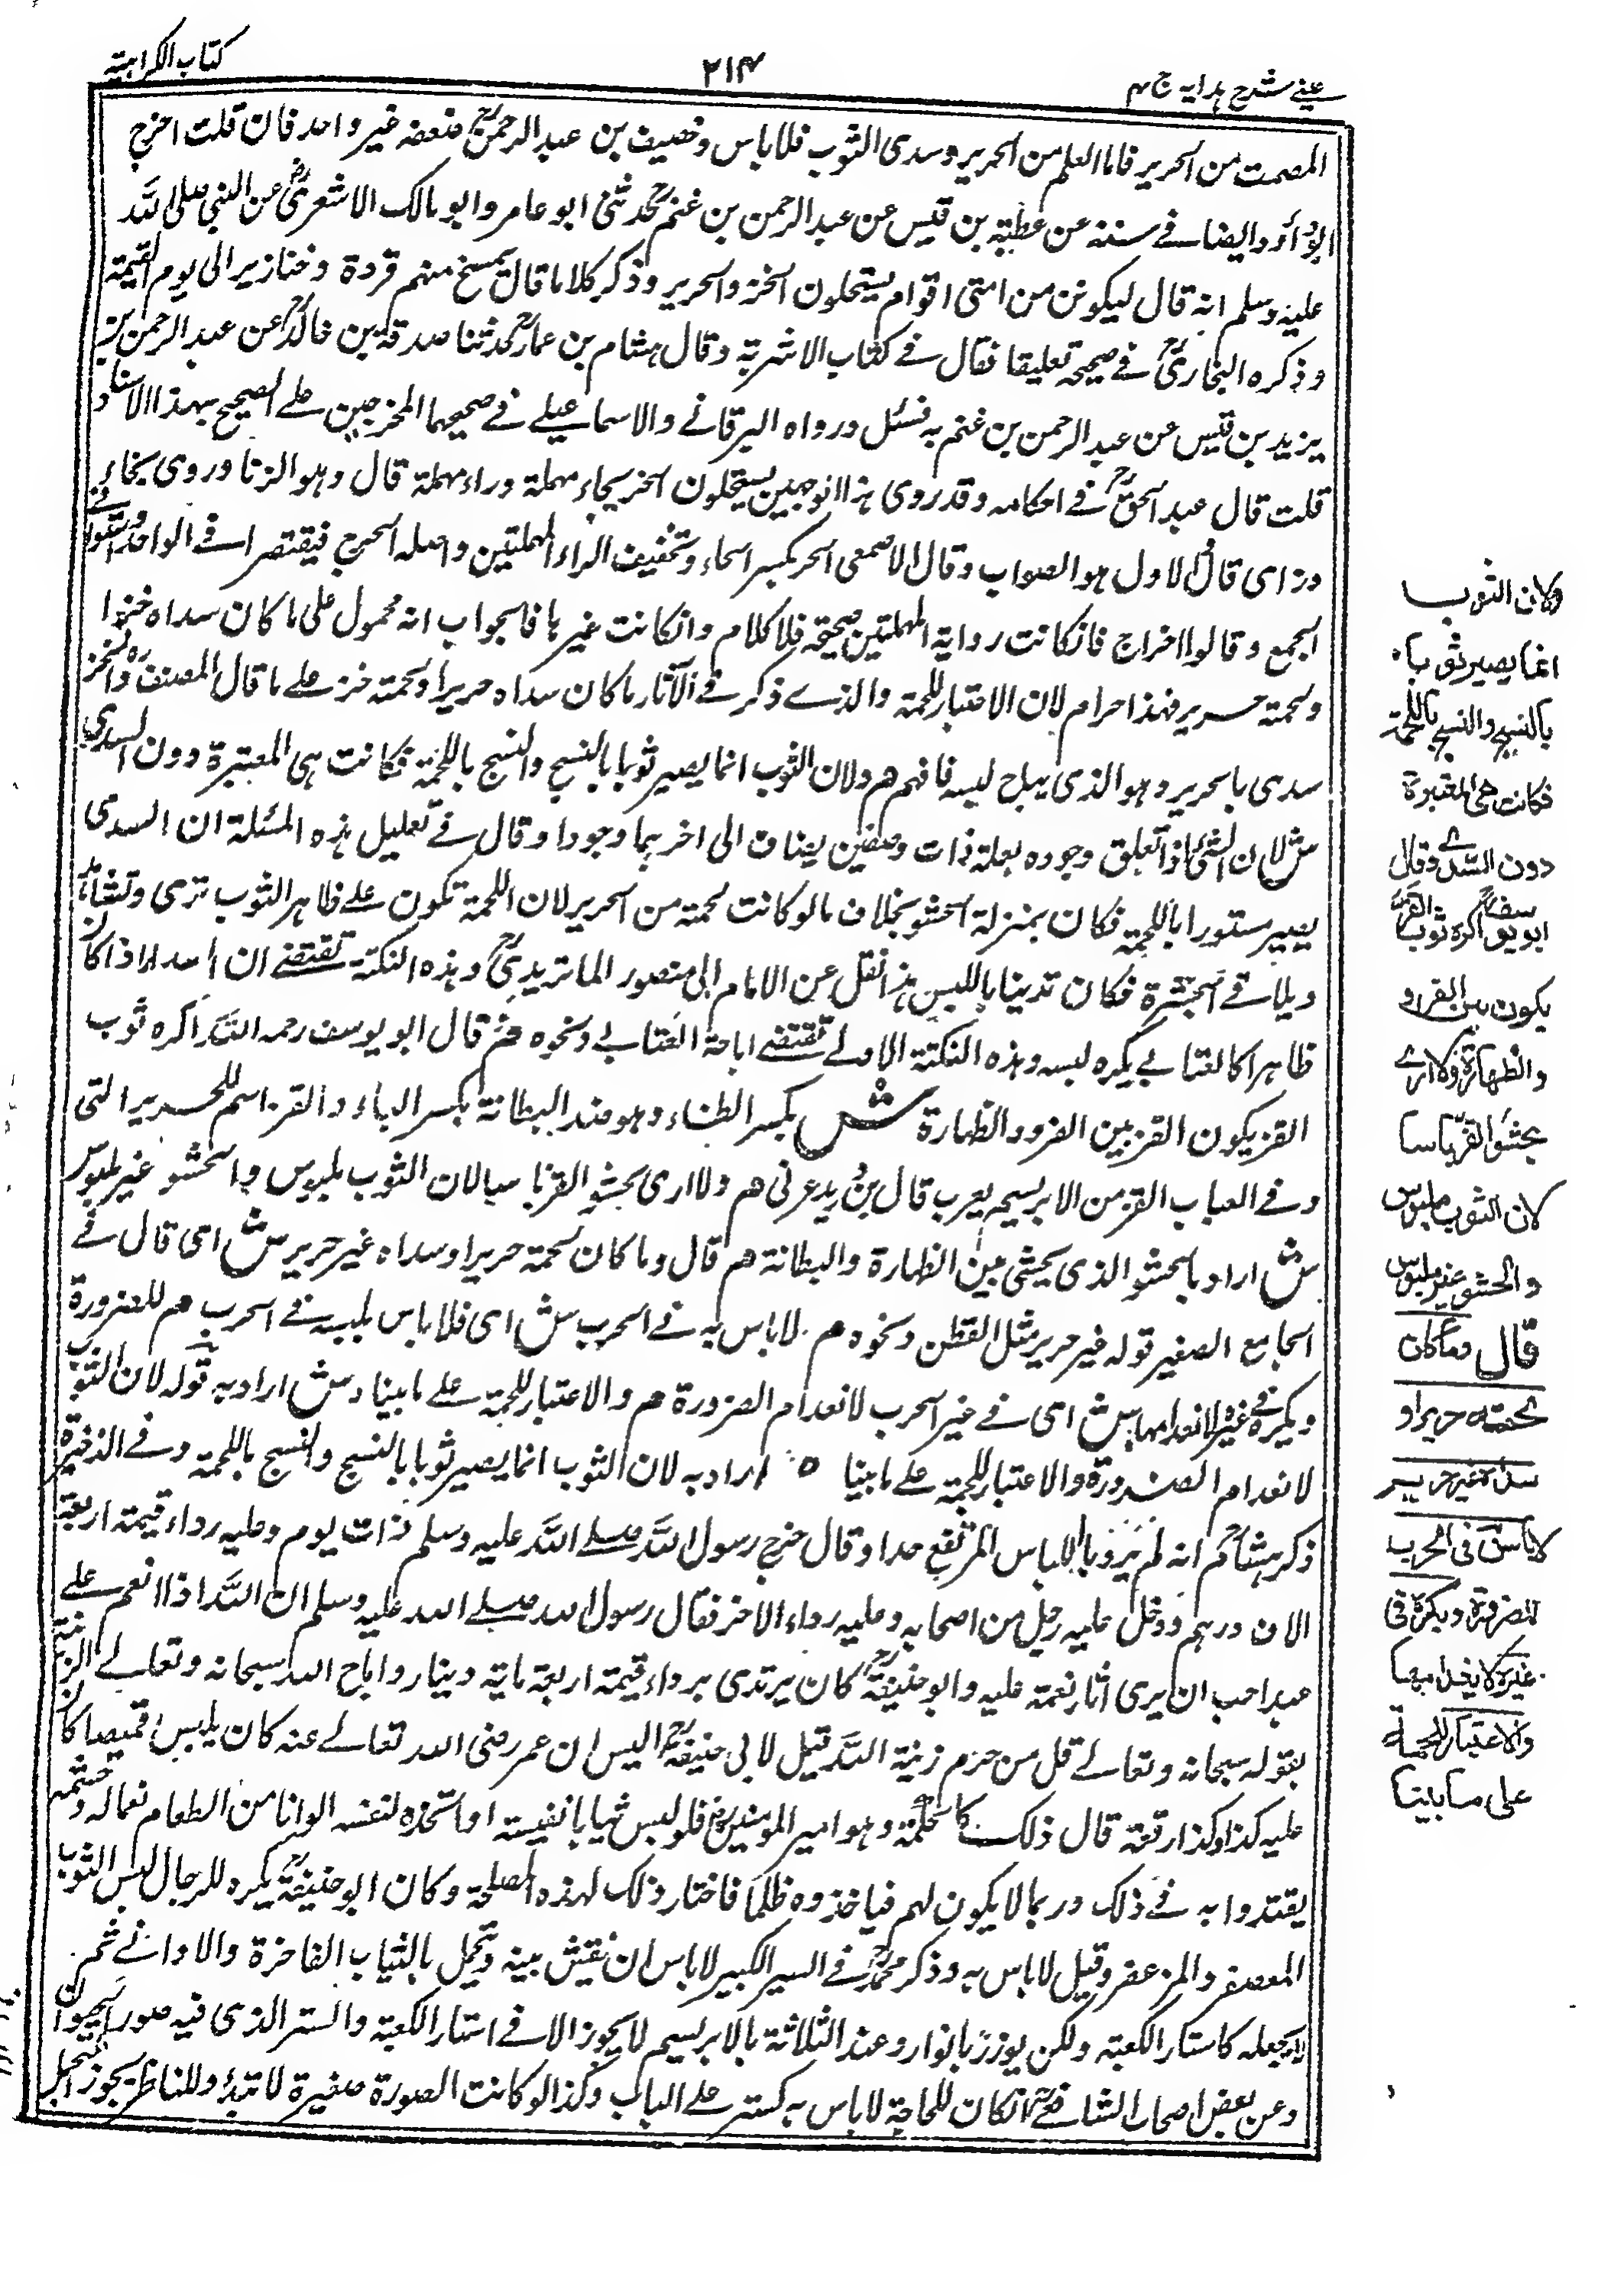 عینے شرح ہدایہ ج ۴
۲۱۴
کتاب الکراہیتہ
المصمت من الحریر فاما العلم من الحریر وسدی الثوب فلا باس وخصیف بن عبد الرحمن ضعفہ غیر واحد فان قلت اخرج
ابوداؤد ایضا فے سننہ عن عطیۃ بن قیس عن عبد الرحمن بن غنم حدثنی ابو عامر وابو مالک الاشعری عن النبی صلی اللہ
علیہ وسلم انہ قال لیکونن من امتی اقوام یستحلون الخز والحریر وذکر کلاما قال یمسخ منہم قردۃ وخنازیر الی یوم القیمۃ
وذکرہ البخاری فے صحیحہ تعلیقا فقال فے کتاب الاشربۃ وقال ہشام بن عمار حدثنا صدقۃ بن خالد عن عبد الرحمن بن
یزید بن قیس عن عبد الرحمن بن غنم بہ فسئل ورواہ البرقانے والاسماعیلے فے صحیحہما المخرجین علے الصحیح بہذا الاسناد
قلت قال عبد الحق فے احکامہ وقد روی ہذا بوجہین یستحلون الحر بحاء مہملۃ وراء مہملۃ قال وہو الزنا وروی بخاء
وزای قال الاول ہو الصواب وقال الاصمعی الحر بکسر الحاء وتخفیف الراء المہملتین واصلہ الحرح فیقتصر فے الواحد
الجمع وقالوا احراج فان کانت روایۃ المہملتین صحیحۃ فلا کلام وانکانت غیرہا فالجواب انہ محمول علی ما کان سداہ خزا
ولحمتہ حریر فہذا حرام لان الاعتبار للحمۃ والذے ذکر فے الآثار ما کان سداہ حریرا ولحمتہ خز علے ما قال المصنف والخز
سدی بالحریر وہو الذی یباح لبسہ فافہم ھم ولان الثوب انما یصیر ثوبا بالنسج والنسج باللحمۃ فکانت ہی المعتبرۃ دون السدی
ش لان الشئ اذا تعلق وجودہ بعلۃ ذات وصفین یضاف الی اخرہما وجودا وقال فے تعلیل ہذہ المسئلۃ ان السدی
یصیر مستورا باللحمۃ فکان بمنزلۃ الحشو بخلاف ما لو کانت لحمتہ من الحریر لان اللحمۃ تکون علے ظاہر الثوب تری وتشاہد
ویلاقے البشرۃ فکان تدینا باللبس ہذا نقل عن الامام ابی منصور الماتریدی وہذہ النکتۃ تقتضے ان السدا اذا کان
ظاہرا کالعتابے یکرہ لبسہ وہذہ النکتۃ الاولے تقتضے اباحۃ العتابے ونحوہ ھم قال ابو یوسف رحمہ اللہ اکرہ ثوب
القز یکون القز بین الفرو والظہارۃ ش بکسر الظاء وہو ضد البطانۃ بکسر الباء والقز اسم للحریر التی
وفے العباب القز من الابریسم یعرب قال بن درید عربی ھم ولا اری بحشو القز باسا لان الثوب ملبوس والحشو غیر ملبوس
ش اراد بالحشو الذی یحشی بین الظہارۃ والبطانۃ ھم قال وما کان لحمتہ حریرا وسداہ غیر حریر ش ای قال فے
الجامع الصغیر قولہ غیر حریر مثل القطن ونحوہ ھم لا باس بہ فے الحرب ش ای فلا باس بلبسہ فے الحرب ھم للضرورۃ
ویکرہ فے غیرہ لانعدامہا ش ای فے غیر الحرب لانعدام الضرورۃ ھم والاعتبار للحمۃ علے ما بینا ش اراد بہ قولہ لان الثوب
لانعدام الضرورۃ والاعتبار للحمۃ علے ما بینا ہ اراد بہ لان الثوب انما یصیر ثوبا بالنسج والنسج باللحمۃ وفے الذخیرۃ
ذکر ہشام انہ لم یر باللباس المرتفع جدا وقال خرج رسول اللہ صلے اللہ علیہ وسلم ذات یوم وعلیہ رداء قیمتہ اربعۃ
الاف درہم ودخل علیہ رجل من اصحابہ وعلیہ رداء الاخز فقال رسول اللہ صلے اللہ علیہ وسلم ان اللہ اذا انعم علے
عبد احب ان یری اثار نعمۃ علیہ وابو حنیفۃ کان یرتدی برداء قیمتہ اربعۃ مایۃ دینار واباح اللہ سبحانہ وتعالے الزینۃ
بقولہ سبحانہ وتعالے قل من حرم زینۃ اللہ قیل لابی حنیفۃ الیس ان عمر رضی اللہ تعالے عنہ کان یلبس قمیصا کان
علیہ کذا وکذا رقعۃ قال ذلک لحکمۃ وہو امیر المومنین فلو لبس ثیابا نفیسۃ او اتخذہ لنفسہ الوانا من الطعام فعمالہ وحشمہ
یقتدوا بہ فے ذلک وربما لا یکون لہم فیاخذوہ ظلما فاختار ذلک لہذہ المصلحۃ وکان ابو حنیفۃ یکرہ للرجال لبس الثوب
المعصفر والمزعفر وقیل لا باس بہ وذکر محمد فے السیر الکبیر لا باس ان نقیش بیتہ ویتجمل بالثیاب الفاخرۃ والاوانے ثم
لا یجعلہ کاستار الکعبۃ ولکن یوزر بانوار وعند الثلاثۃ بالابریسم لا یجوز الا فے استار الکعبۃ والستر الذی فیہ صور الحیوان
وعن بعض اصحاب الشافعے ان کان للحاجۃ لا باس بہ کستر علے الباب وکذا لو کانت الصورۃ صغیرۃ لا تبدؤ وللناظر یجوز
ولان الثوب
انما یصیر ثوبا
بالنسج والنسج باللحمۃ
فکانت ھی المعتبرۃ
دون السدے وقال
ابو یوسف اکرہ ثوب القز
یکون بین الفرو
والظہارۃ ولا ارے
بحشو القز باسا
لان الثوب ملبوس
والحشو غیر ملبوس
قال وما کان
لحمتہ حریرا و
سداہ غیر حریر
لا باس فی الحرب
للضرورۃ ویکرہ فی
غیرہ لانعدامہا
والاعتبار للحمۃ
علی ما بینا